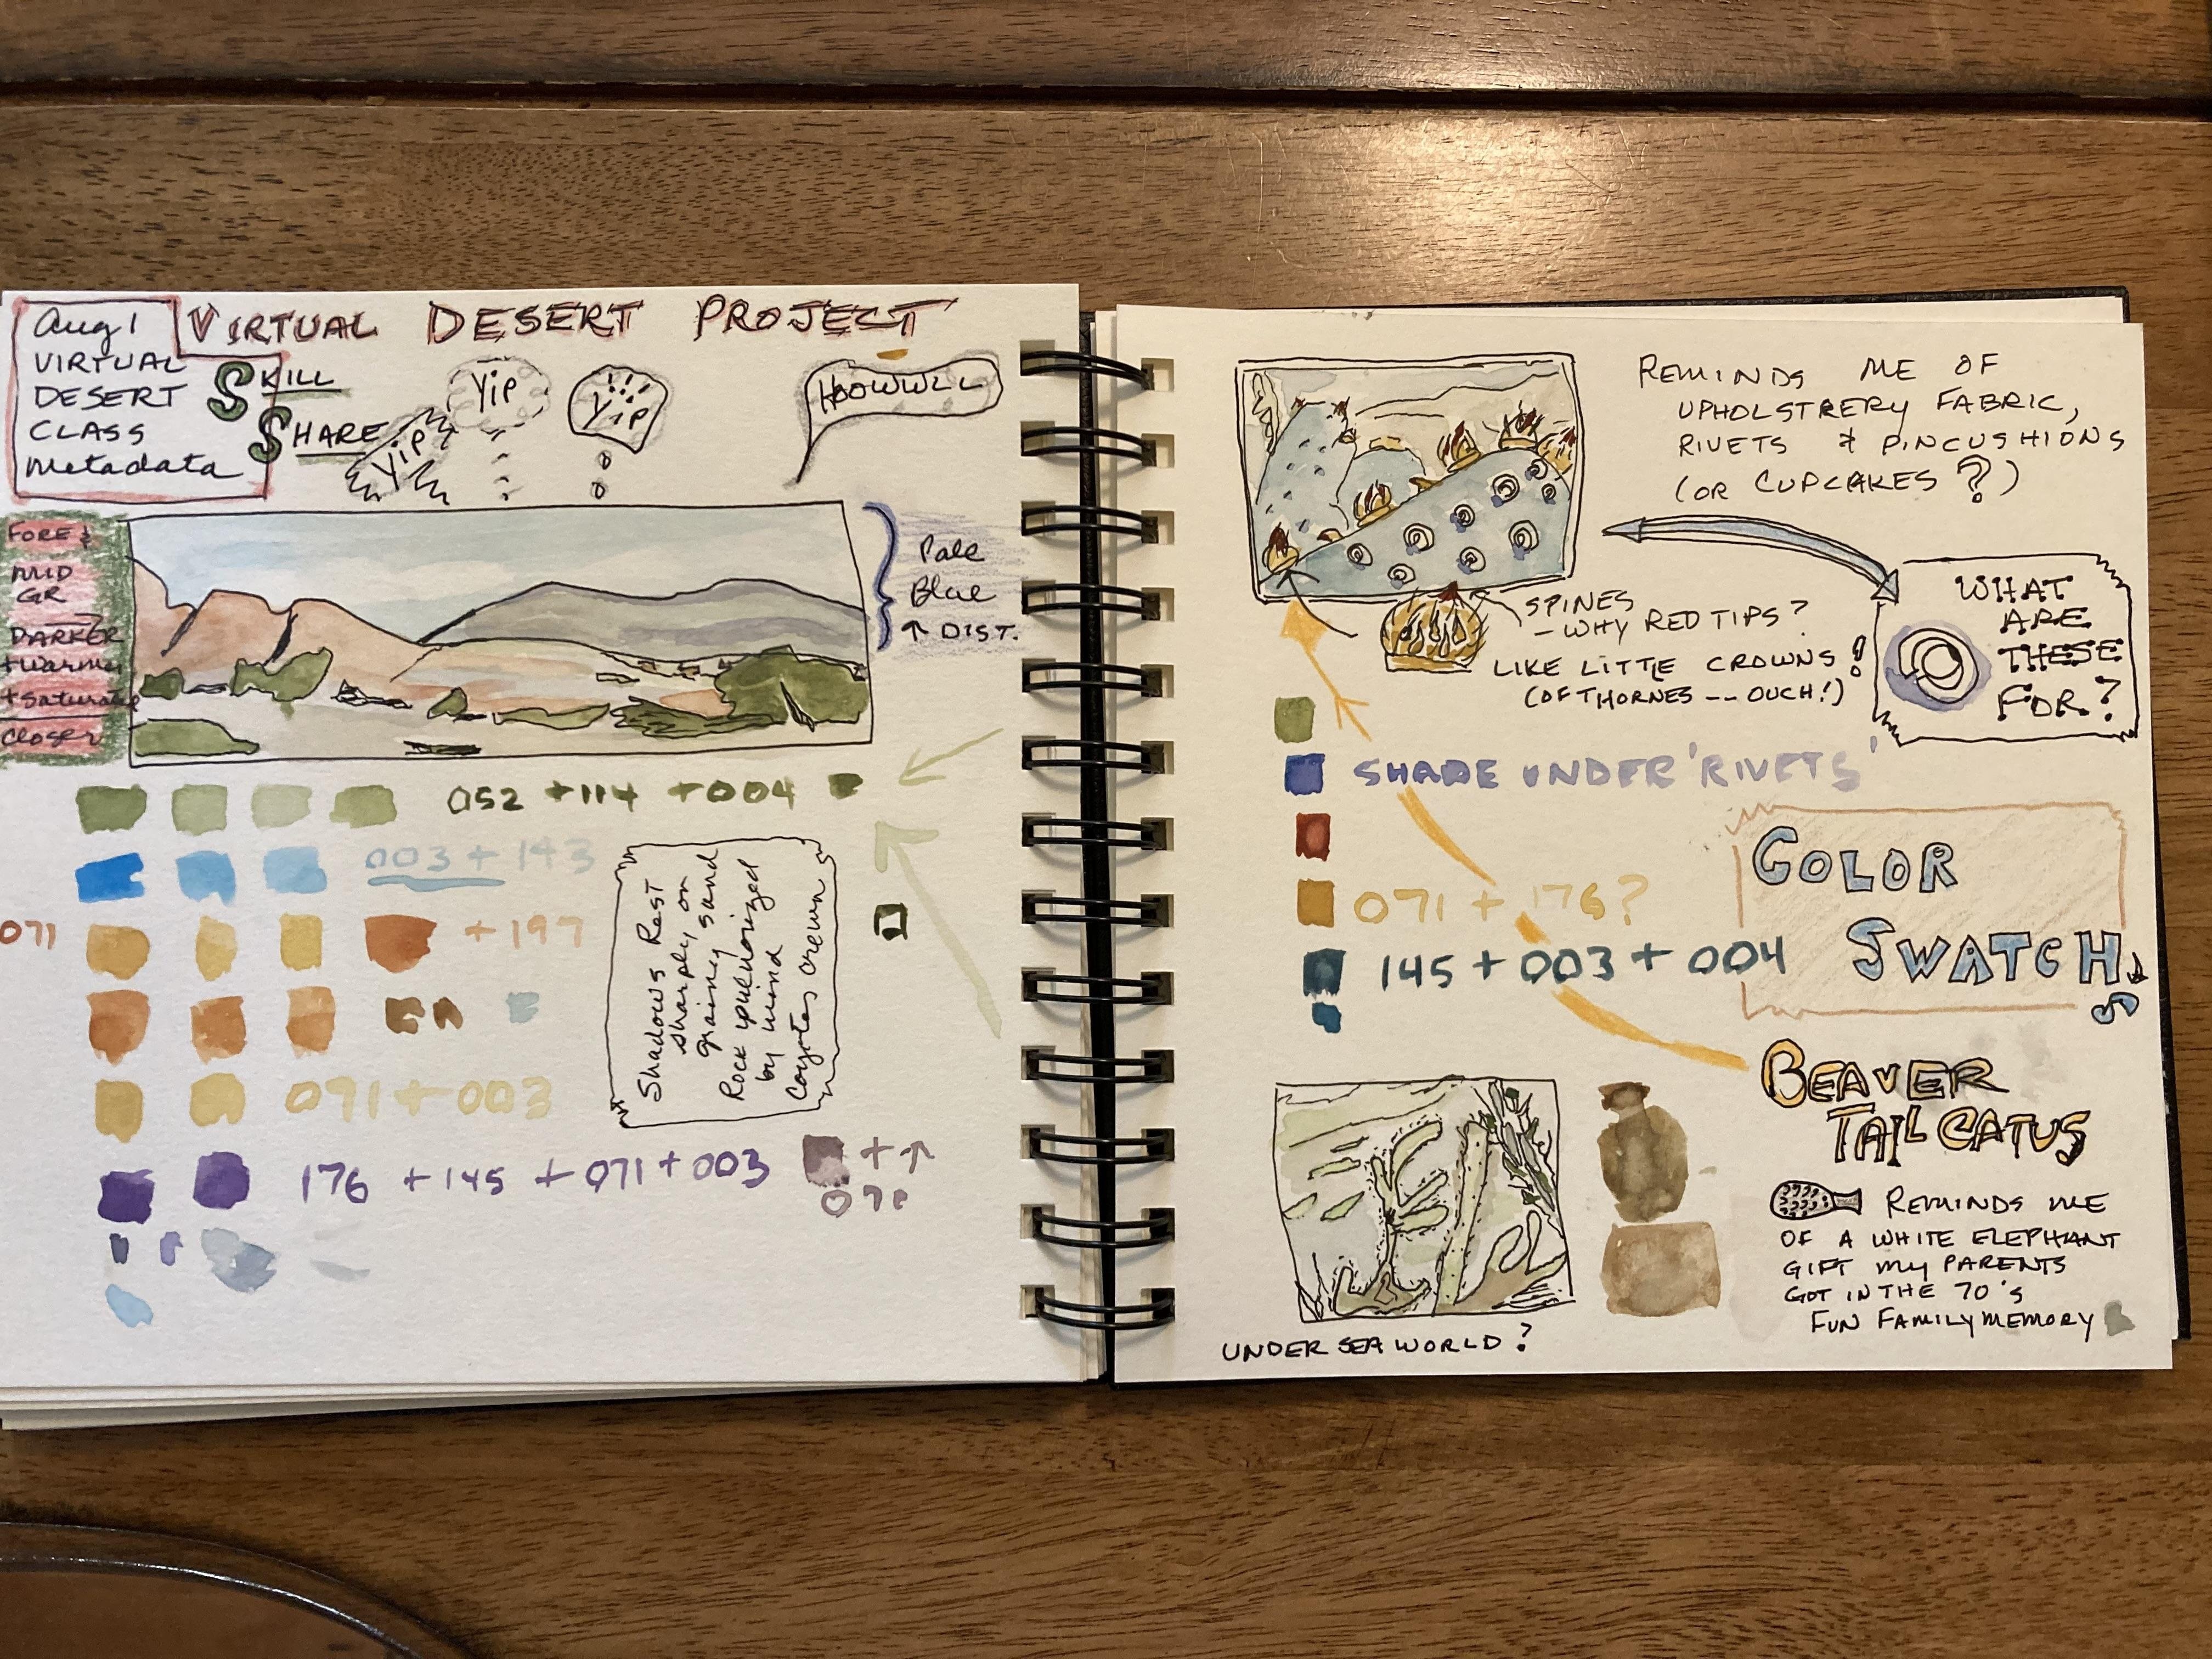 Aug 1
VIRTUAL
DESERT
CLASS
metadata
VIRTUAL DESERT PROJECT
SKILL
SHARE
Yip
Yip
!!!
Yip
HOOWWLL
FORE &
MID
GR
DARKER
+warmer
+saturated
closer
Pale
Blue
↑ DIST.
052 + 114 + 004
003 + 143
071
+ 197
071 + 003
176 + 145 + 071 + 003
+ ↑
Shadows Rest
sharply on
grainy sand
Rock
by wind
Coyotes
REMINDS ME OF
UPHOLSTRERY FABRIC,
RIVETS & PINCUSHIONS
(OR CUPCAKES?)
SPINES
- WHY RED TIPS?
LIKE LITTLE CROWNS!
(OF THORNES -- OUCH!)
WHAT
ARE
THESE
FOR?
SHADE UNDER 'RIVETS'
071 + 176?
145 + 003 + 004
COLOR
SWATCH
BEAVER
TAIL CATUS
REMINDS ME
OF A WHITE ELEPHANT
GIFT MY PARENTS
GOT IN THE 70's
FUN FAMILY MEMORY
UNDER SEA WORLD?